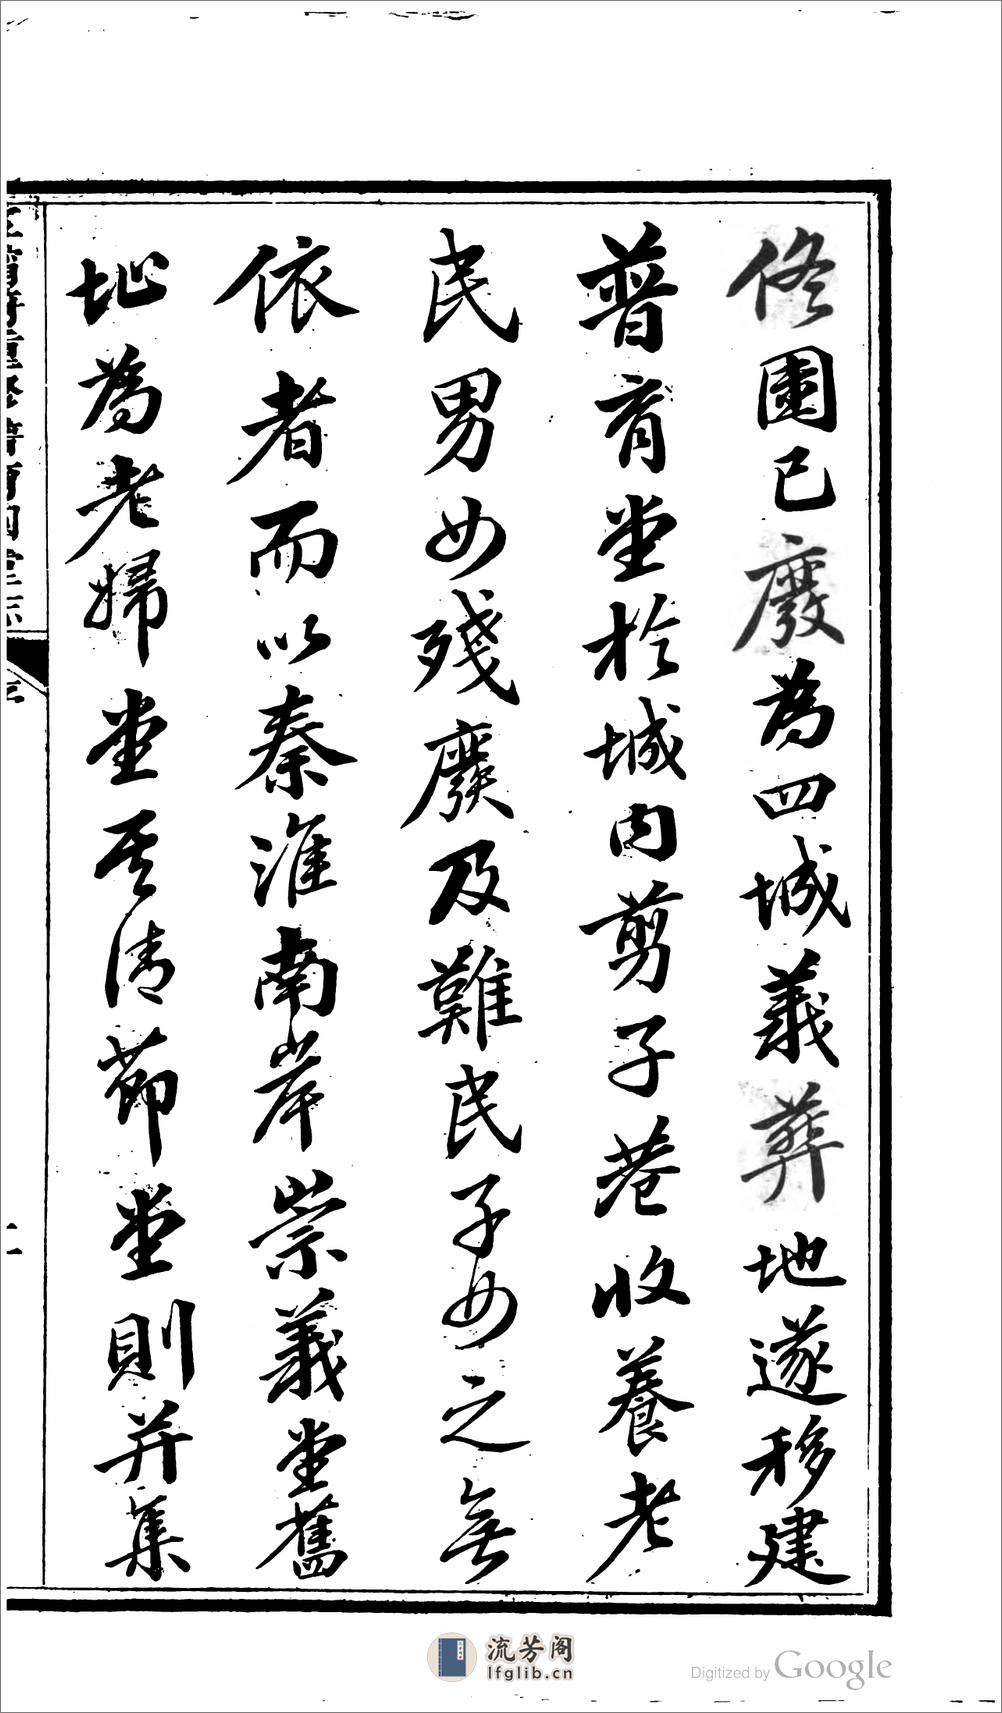 佟園已廢為四城義葬地遂移建
普育堂於城內剪子巷收養老
民男女殘廢及難民子女之無
依者而以秦淮南岸崇義堂舊
址為老婦堂至清節堂則并集
流芳阁
lfglib.cn
Digitized by Google